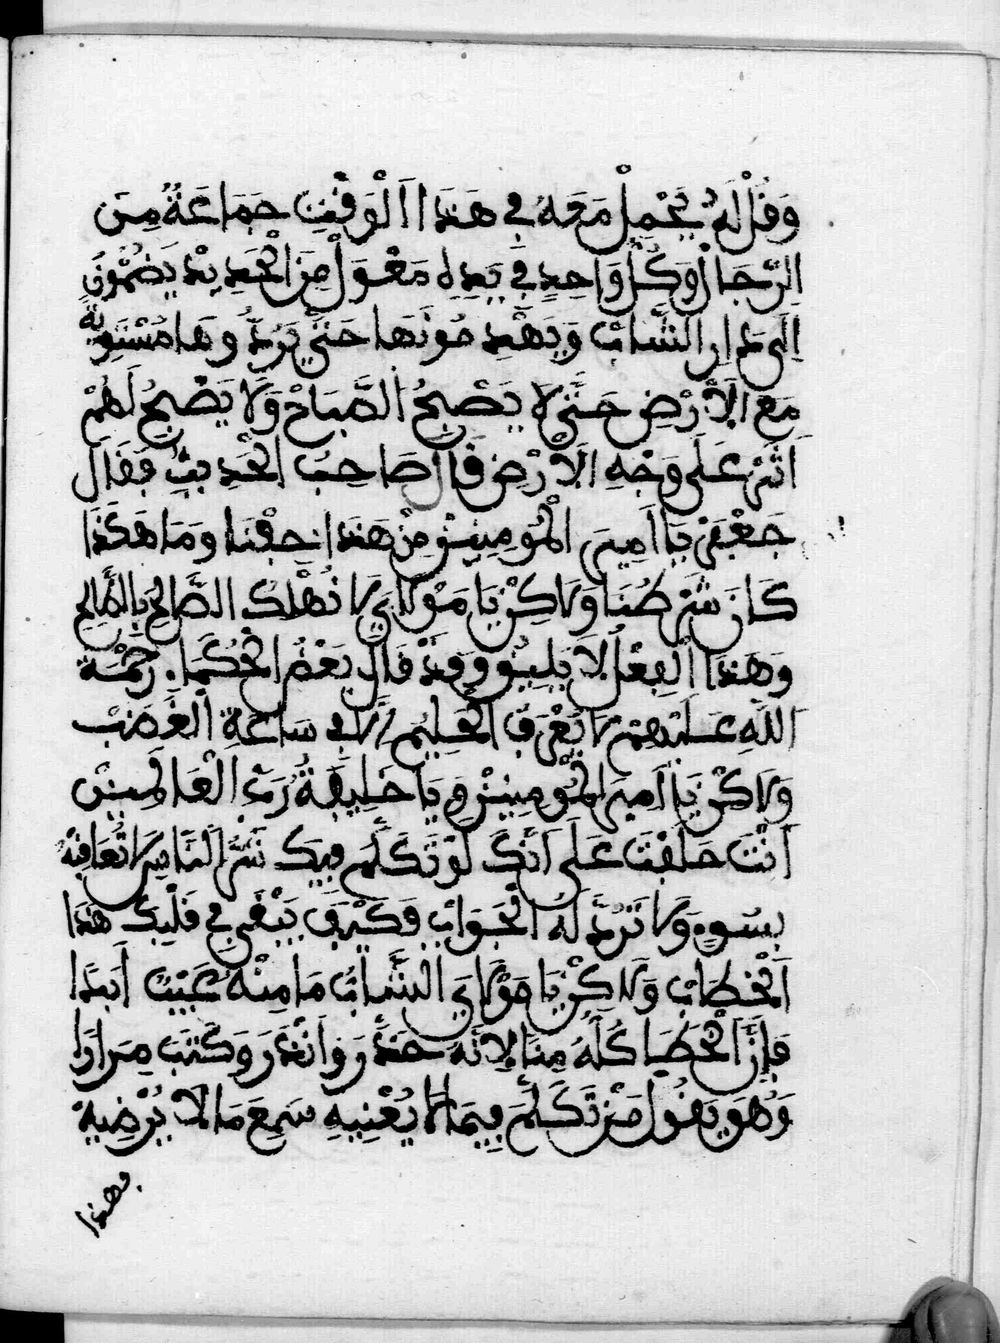 وَقُلْ لَهُ يَحْمِلْ مَعَهُ فِي هَذَا الْوَقْتِ جَمَاعَةٌ مِنَ
الرِّجَالْ وَكُلُّ وَاحِدٍ فِي يَدِهِ مَعْوَلْ مِنَ الْحَدِيدْ يَمْضُونَ
الَى دَارِ الشَّابْ وَيَهْدِمُونَهَا حَتَّى يَرُدُّوهَا مُسْتَوِيَةً
مَعَ الاَرْضِ حَتَّى لا يَصْبِحُ الصَّبَاحْ وَلا يَصْبِحُ لَهُمْ
اَثَرْ عَلَى وَجْهِ الاَرْضِ قَالَ صَاحِبُ الْحَدِيثِ فَقَالَ
جَعْفَرْ يَا اَمِيرَ الْمُومِنِينْ مِنْ هَذَا خِفْنَا وَمَا هَكَذَا
كَانَ شَرْطُنَا وَلاكِنْ يَا مَوْلايَ لا تُهْلِكْ الصَّالِحْ بِالطَّالِحْ
وَهَذَا الْفِعْلُ لا يَلِيقُ وَقَدْ قَالَ بَعْضُ الْحُكَمَاءِ رَحْمَةُ
اللَّهِ عَلَيْهِمْ لا يُعْرَفُ الْحَلِيمُ اِلا فِي سَاعَةِ الْغَضَبْ
وَلاكِنْ يَا اَمِيرَ الْمُومِنِينْ وَيَا خَلِيفَةَ رَبِّ الْعَالَمِينْ
اَنْتَ حَلَفْتَ عَلَى اَنَّكَ لَوْ تَكَلَّمَ فِيكَ شَرُّ النَّاسِ لا تُعَاقِبْهُ
بِسُوءٍ وَلا تَرُدَّ لَهُ الْجَوَابْ فَكَيْفَ يَبْقَى فِي قَلْبِكَ هَذَا
الْخِطَابْ وَلاكِنْ يَا مَوْلايَ الشَّابُ مَا مِنْهُ عَيْبٌ اَبَدًا
فَاِنَّ الْخَطَا كُلَّهُ مِنَّا لاِنَّهُ حَذَّرَ وَانْذَرَ وَكَتَبَ مِرَارًا
وَهُوَ يَقُولُ مَنْ تَكَلَّمَ فِيمَا لا يُعْنِيهِ سَمِعَ مَا لا يُرْضِيهْ
وهذا